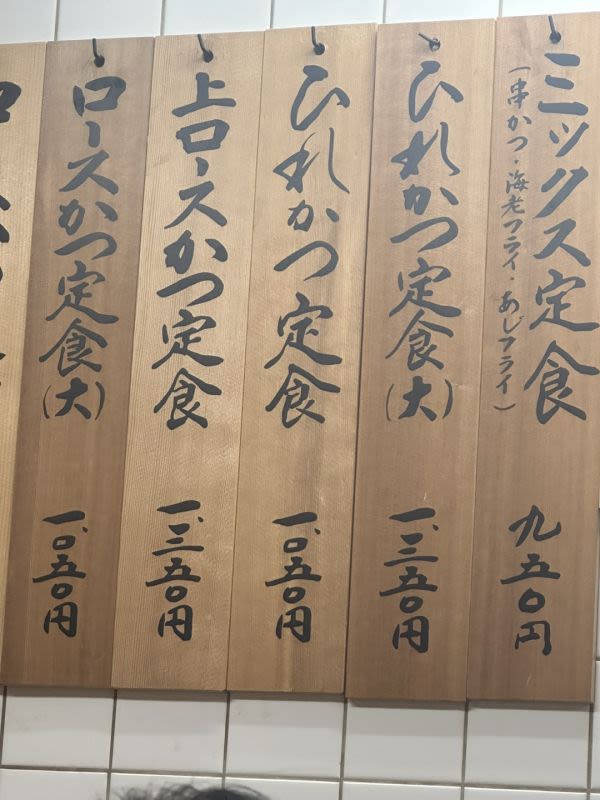 ミックス定食
(串かつ・海老フライ・あじフライ)
九五〇円
ひれかつ定食(大)
一、二五〇円
ひれかつ定食
一、〇五〇円
上ロースかつ定食
一、二五〇円
ロースかつ定食(大)
一、〇五〇円